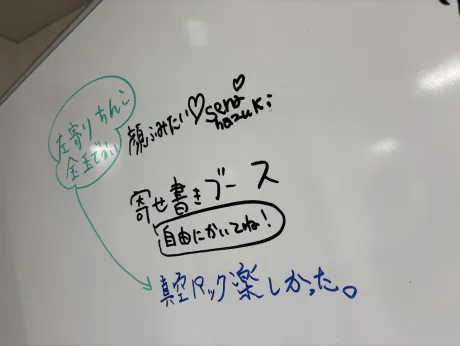 左寄りちんこ
金玉でかい
顔ふみたい♡
sena
hazuki
寄せ書きブース
自由にかいてね!
真空パック楽しかった。